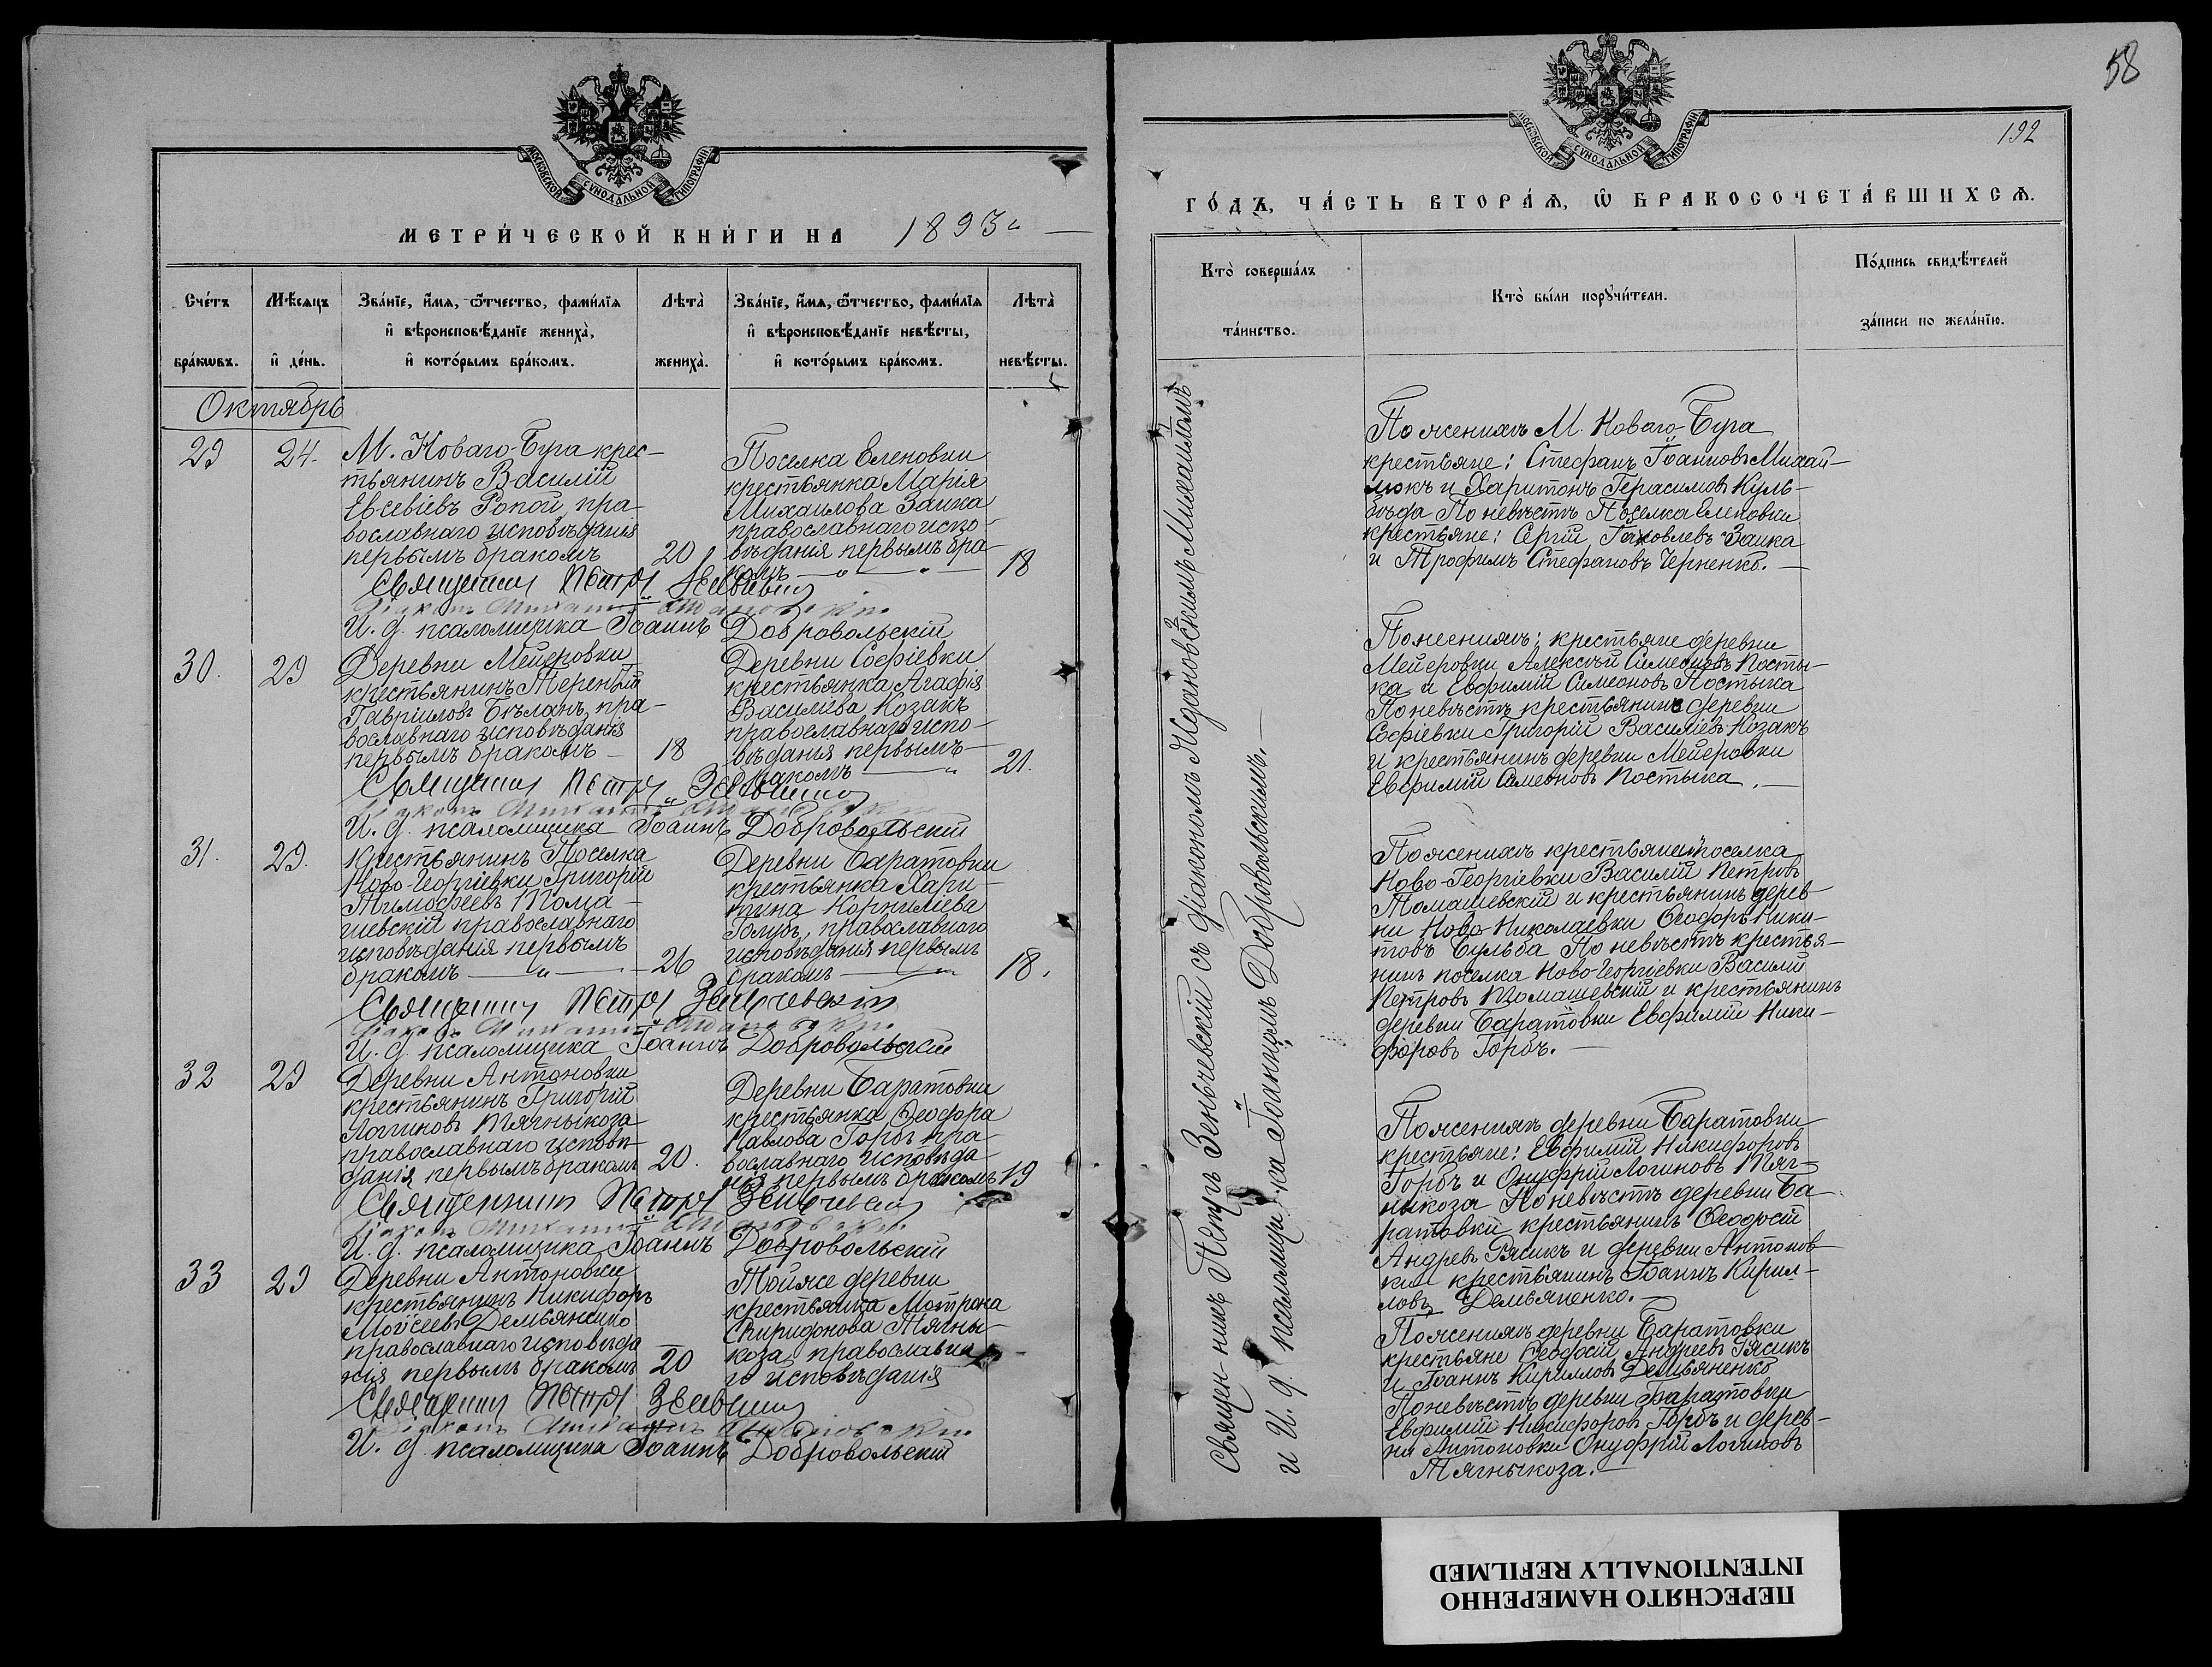 МОСКОВСКОЙ СѴНОДАЛЬНОЙ ТИПОГРАФІИ
МЕТРИ́ЧЕСКОЙ КНИ́ГИ НА 1893 г.
Сче́тъ бра́кѡвъ.
Мѣ́сѧцъ и҆ де́нь.
Зва́нїе, и҆́мѧ, ѻ҆́тчество, фами́лїѧ
и҆ вѣроисповѣ́данїе жениха̀,
и҆ кото́рымъ бра́комъ.
Лѣта̀ жениха̀.
Зва́нїе, и҆́мѧ, ѻ҆́тчество, фами́лїѧ
и҆ вѣроисповѣ́данїе невѣ́сты,
и҆ кото́рымъ бра́комъ.
Лѣта̀ невѣ́сты.
Октябрь
29
24.
М. Новаго-Буга крес-
тьянинъ Василій
Евсевіевъ Ропой, пра-
вославнаго исповѣданія
первымъ бракомъ
20
Поселка Еленовки
крестьянка Марія
Михаилова Заика
православнаго испо-
вѣданія первымъ бра-
комъ
18
Священник Петръ
И. д. псаломщика Іоаннъ Добровольскій
30.
29
Деревни Мейеровки
крестьянинъ Терентій
Гавріиловъ Бѣланъ, пра-
вославнаго исповѣданія
первымъ бракомъ —
18
Деревни Софіевки
крестьянка Агафія
Василіева Козакъ
православнаго испо-
вѣданія первымъ
бракомъ
21.
Священник Петръ
И. д. псаломщика Іоаннъ Добровольскій
31.
29.
Крестьянинъ Поселка
Ново-Георгіевки Григорій
Тимофеевъ Тома-
шевскій православнаго
исповѣданія первымъ
бракомъ
26
Деревни Баратовки
крестьянка Хари-
тина Корниліева
Голубъ, православнаго
исповѣданія первымъ
бракомъ
18.
Священник Петръ Зеньчевскій
И. д. псаломщика Іоаннъ Добровольскій
32
29
Деревни Антоновки
крестьянинъ Григорій
Логиновъ Тягныкоза
православнаго исповѣ-
данія первымъ бракомъ
20.
Деревни Баратовки
крестьянка Ѳеодора
Павлова Горбъ пра-
вославнаго исповѣда-
нія первымъ бракомъ
19
Священник Петръ
И. д. псаломщика Іоаннъ Добровольскій
33
29
Деревни Антоновки
крестьянинъ Никифоръ
Моѵсеевъ Демьяненко
православнаго исповѣда
нія первымъ бракомъ
20
Тойже деревни
крестьянка Мотрона
Спиридонова Тягны-
коза православна
го исповѣданія
Священник Петръ
И. д. псаломщика Іоаннъ Добровольскій
58
192
МОСКОВСКОЙ СѴНОДАЛЬНОЙ ТИПОГРАФІИ
ГО́ДЪ, ЧА́СТЬ ВТОРА́Ѧ, Ѡ҆ БРАКОСОЧЕТА́ВШИХСѦ.
Кто̀ соверша́лъ та́инство.
Кто̀ бы́ли порꙋчи́тели.
По́дпись свидѣ́телей
за́писи по жела́нїю.
Священникъ Петръ Зеньчевскій съ діакономъ Ждановскимъ Михаиломъ
и И. д. псаломщика Іоанномъ Добровольскимъ.—
По женихѣ М. Новаго-Буга
крестьяне: Стефанъ Іоанновъ Михай-
люкъ и Харитонъ Герасимовъ Куль-
бѣда По невѣстѣ Поселка Еленовки
крестьяне: Сергій Іаковлевъ Заика
и Трофимъ Стефановъ Черненко. —
По женихѣ: крестьяне деревни
Мейеровки Алексѣй Симеоновъ Посты-
ка и Евфимій Симеоновъ Постыка
По невѣстѣ крестьянинъ деревни
Софіевки Григорій Василіевъ Козакъ
и крестьянинъ деревни Мейеровки
Евфимій Симеоновъ Постыка. —
По женихѣ крестьянинъ поселка
Ново-Георгіевки Василій Петровъ
Томашевскій и крестьянинъ дерев
ни Ново-Николаевки Ѳеодоръ Ники-
товъ Бульба По невѣстѣ крестья-
нинъ поселка Ново-Георгіевки Василій
Петровъ Томашевскій и крестьянинъ
деревни Баратовки Евфимій Ники-
форовъ Горбъ. —
По женихѣ деревни Баратовки
крестьяне: Евфимій Никифоровъ
Горбъ и Онуфрій Логиновъ Тяг-
ныкоза По невѣстѣ деревни Ба
ратовки крестьянинъ Ѳеодосій
Андреевъ Рясикъ и деревни Антонов-
ки крестьянинъ Іоаннъ Кирил-
ловъ Демьяненко. —
По женихѣ деревни Баратовки
крестьяне Ѳеодосій Андреевъ Рясикъ
и Іоаннъ Кирилловъ Демьяненко
По невѣстѣ деревни Баратовки
Евфимій Никифоровъ Горбъ и дерев-
ни Антоновки Онуфрій Логиновъ
Тягныкоза. —
ПЕРЕСНЯТО НАМЕРЕННО
INTENTIONALLY REFILMED